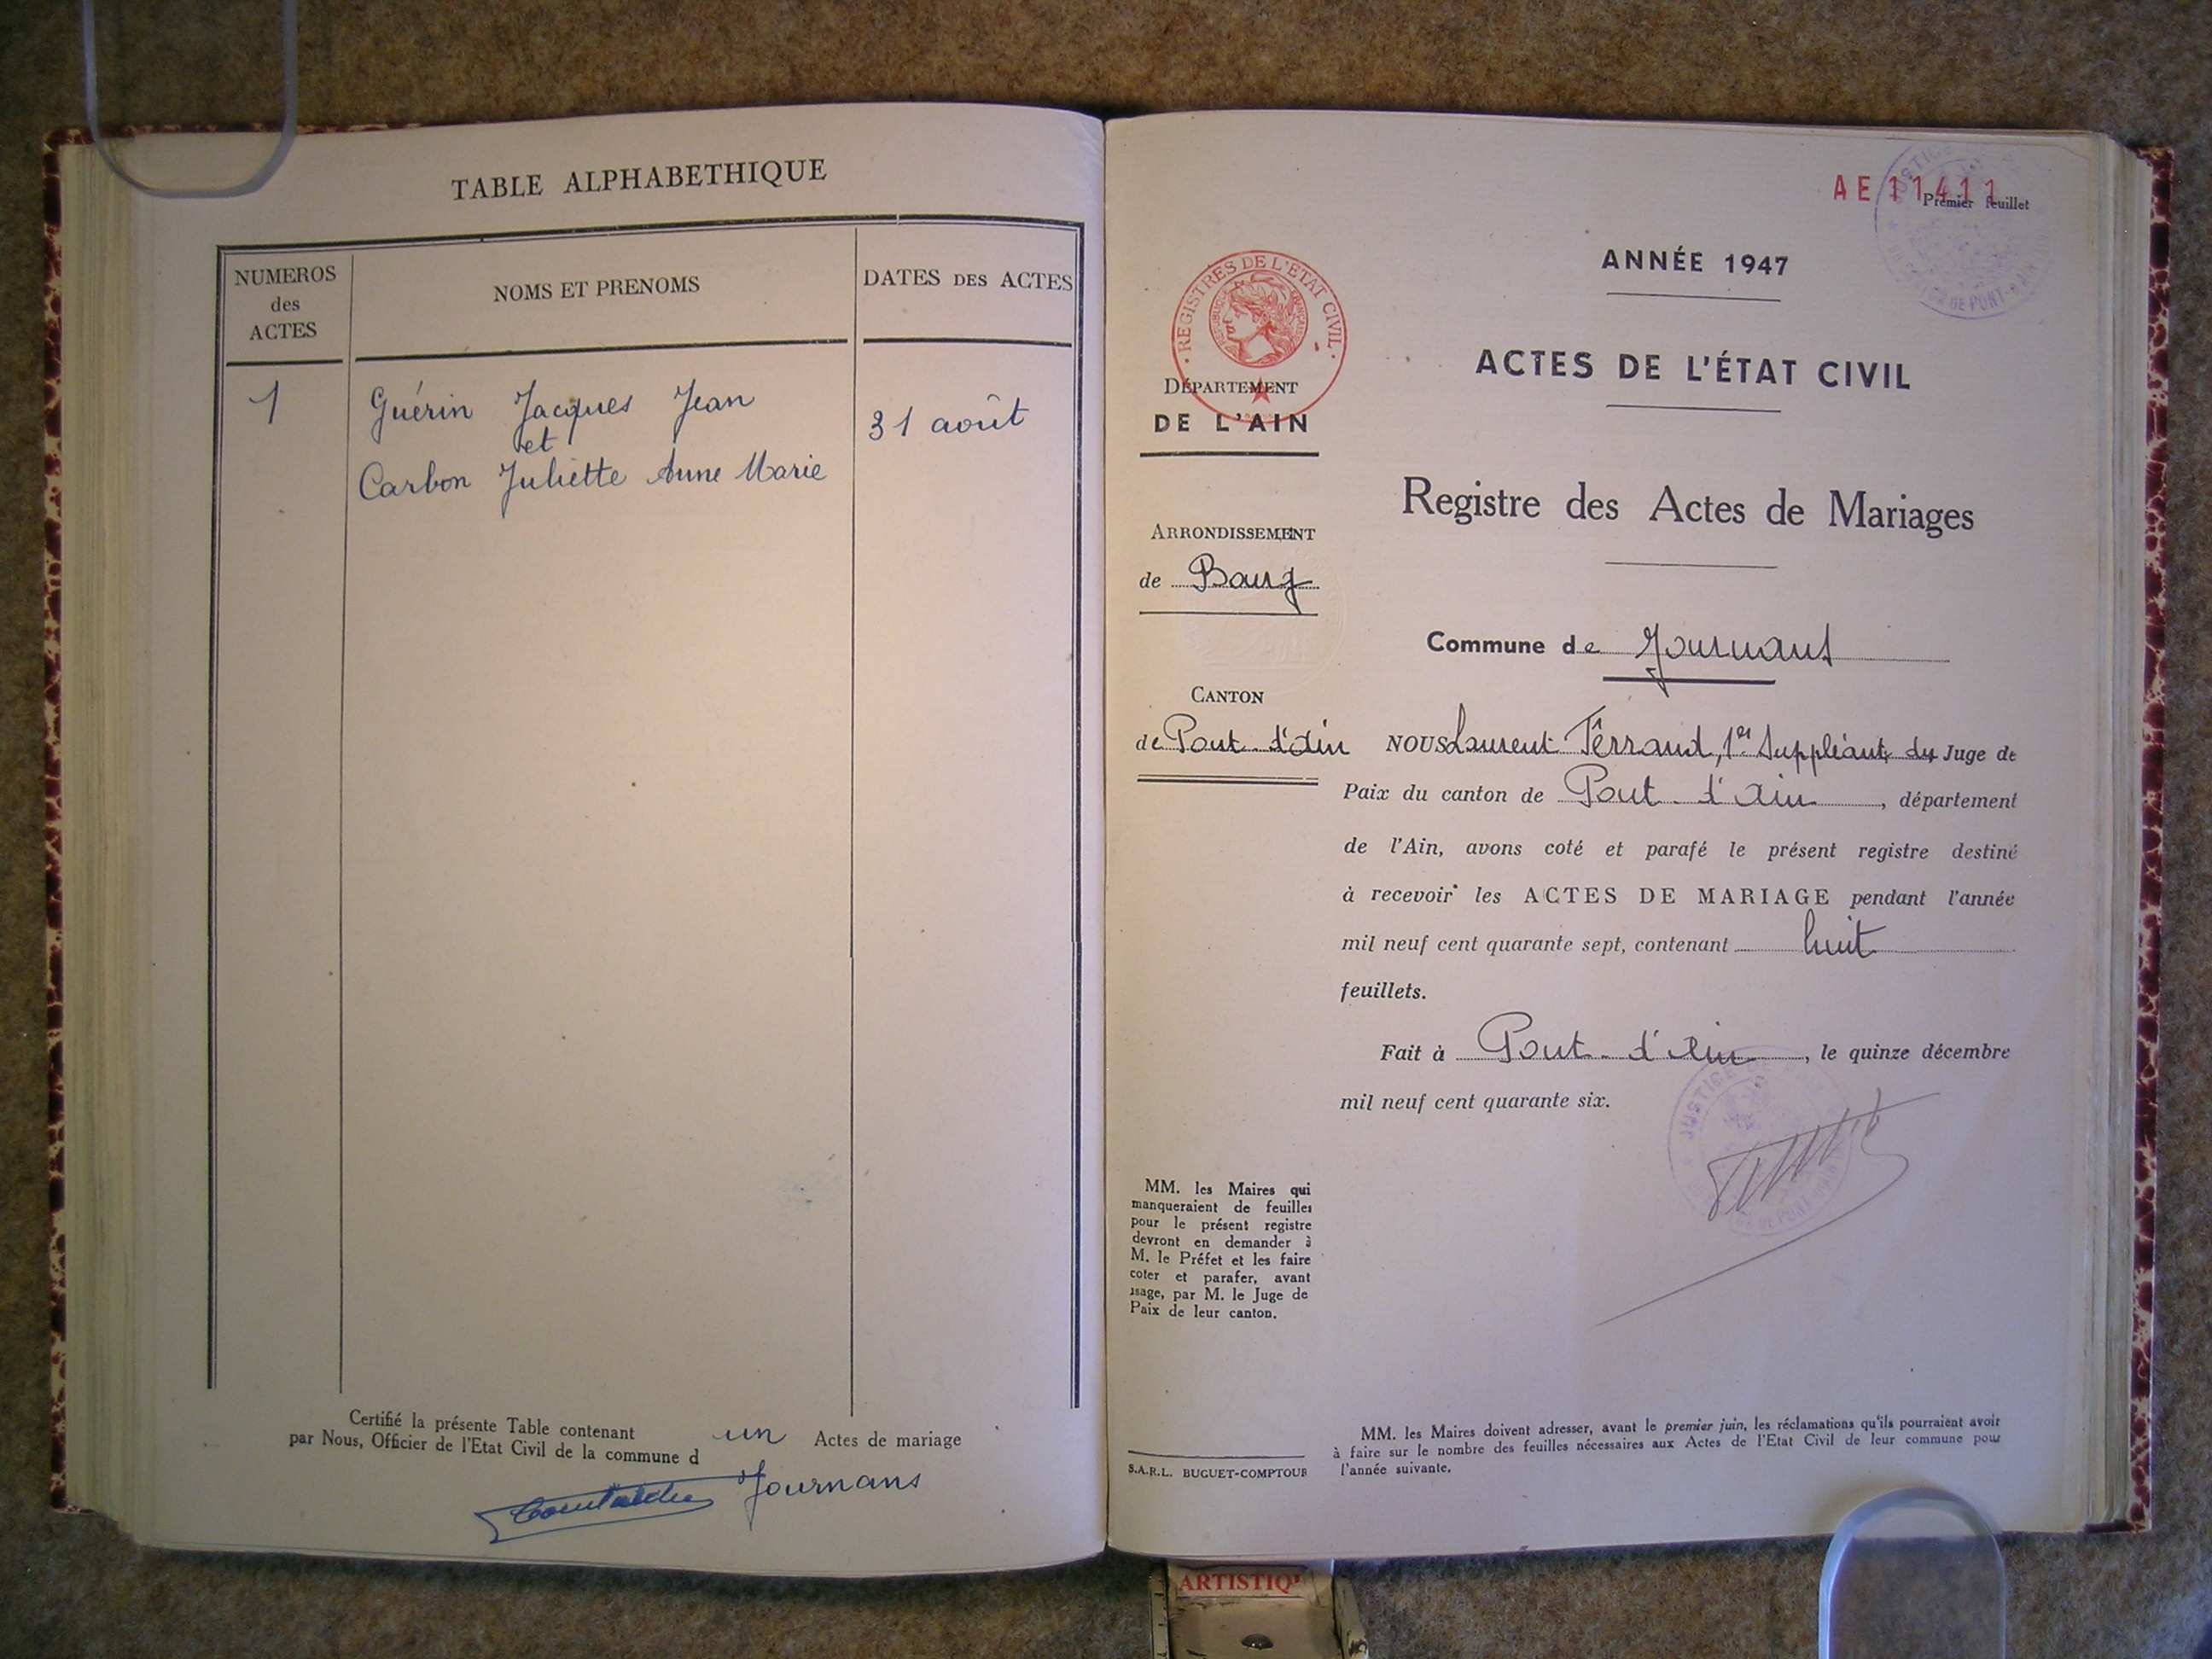 TABLE ALPHABETHIQUE
NUMEROS
des
ACTES
NOMS ET PRENOMS
DATES DES ACTES
1
Guérin Jacques Jean
et
Carbon Juliette Anne Marie
31 août
Certifié la présente Table contenant un Actes de mariage
par Nous, Officier de l'Etat Civil de la commune d
Journans
AE 11411
Premier feuillet
REGISTRES DE L'ETAT CIVIL
ANNÉE 1947
ACTES DE L'ÉTAT CIVIL
Registre des Actes de Mariages
DÉPARTEMENT
DE L'AIN
ARRONDISSEMENT
de Bourg
CANTON
de Pont-d'Ain
Commune de Journans
NOUS Laurent Terrand, 1er Suppléant du Juge de
Paix du canton de Pont-d'Ain, département
de l'Ain, avons coté et parafé le présent registre destiné
à recevoir les ACTES DE MARIAGE pendant l'année
mil neuf cent quarante sept, contenant huit
feuillets.
Fait à Pont-d'Ain, le quinze décembre
mil neuf cent quarante six.
MM. les Maires qui
manqueraient de feuilles
pour le présent registre
devront en demander à
M. le Préfet et les faire
coter et parafer, avant
usage, par M. le Juge de
Paix de leur canton.
S.A.R.L. BUGUET-COMPTOUR
MM. les Maires doivent adresser, avant le premier juin, les réclamations qu'ils pourraient avoir
à faire sur le nombre des feuilles nécessaires aux Actes de l'Etat Civil de leur commune pour
l'année suivante.
ARTISTIQ